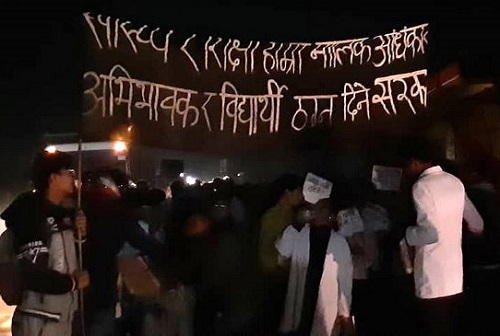 स्वास्थ्य र शिक्षा हाम्रो मौलिक अधिकार
अभिभावक र विद्यार्थी ठग्न दिने सरक